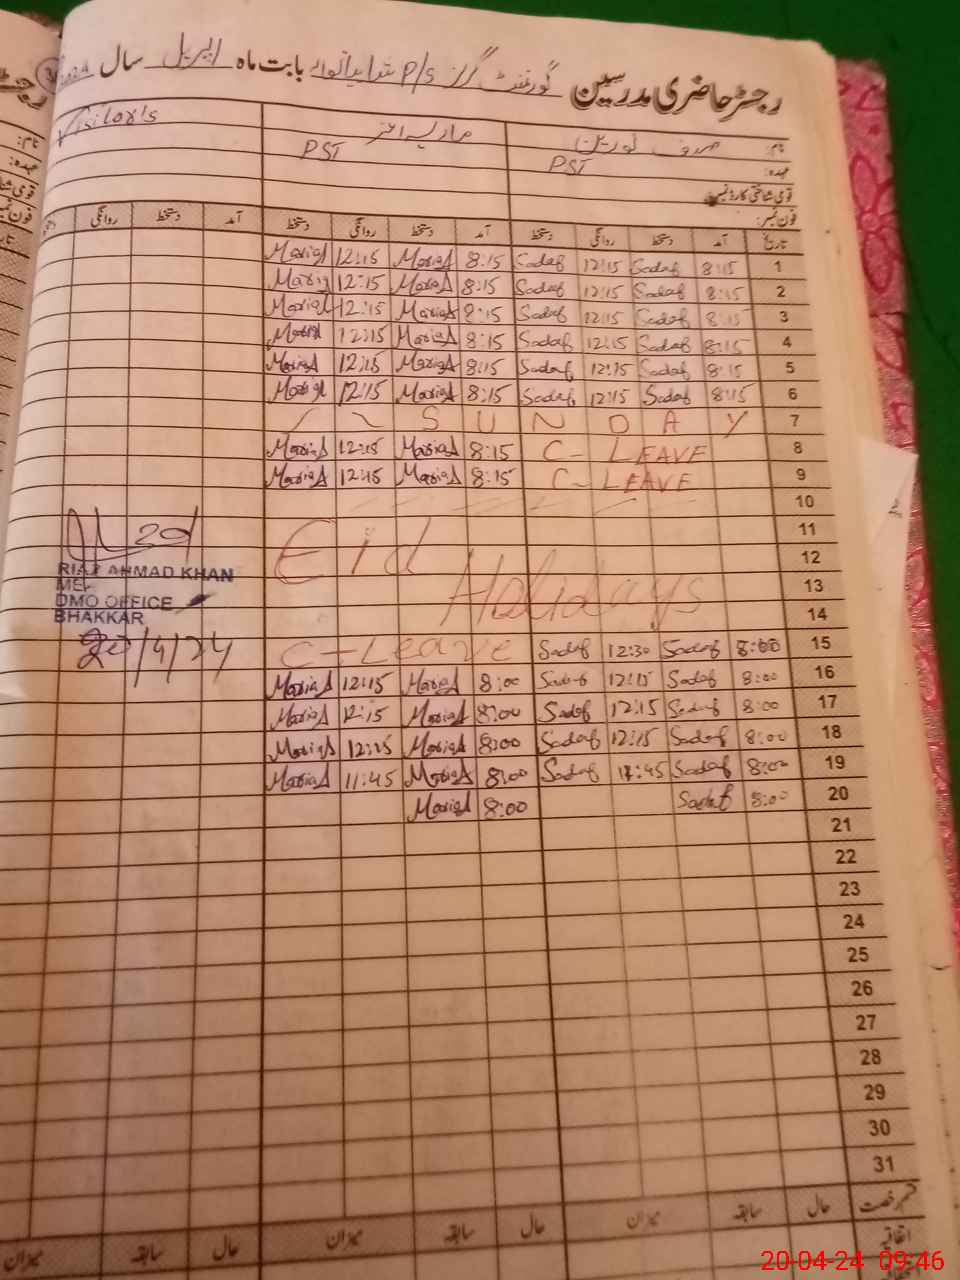 رجسٹر حاضری مدرسین گورنمنٹ گرلز P/S بابت ماہ اپریل سال
نام: صدف نورین Visitor's
عہدہ: PST PST
قومی شناختی کارڈ نمبر
فون نمبر:
تاریخ آمد دستخط روانگی دستخط آمد دستخط روانگی دستخط آمد دستخط روانگی
1 8:15 Sadaf 12:15 Sadaf 8:15 MariaA 12:15 MariaA
2 8:15 Sadaf 12:15 Sadaf 8:15 MariaA 12:15 MariaA
3 8:15 Sadaf 12:15 Sadaf 8:15 MariaA 12:15 MariaA
4 8:15 Sadaf 12:15 Sadaf 8:15 MariaA 12:15 MariaA
5 8:15 Sadaf 12:15 Sadaf 8:15 MariaA 12:15 MariaA
6 8:15 Sadaf 12:15 Sadaf 8:15 MariaA 12:15 MariaA
7 SUNDAY
8 C- LEAVE 8:15 MariaA 12:15 MariaA
9 C- LEAVE 8:15 MariaA 12:15 MariaA
10
11
12
13
14
Eid Holidays
RIAZ AHMAD KHAN
MEA
DMO OFFICE
BHAKKAR
20/4/24
15 8:00 Sadaf 12:30 Sadaf C-Leave
16 8:00 Sadaf 12:15 Sadaf 8:00 MariaA 12:15 MariaA
17 8:00 Sadaf 12:15 Sadaf 8:00 MariaA 12:15 MariaA
18 8:00 Sadaf 12:15 Sadaf 8:00 MariaA 12:15 MariaA
19 8:00 Sadaf 11:45 Sadaf 8:00 MariaA 11:45 MariaA
20 8:00 Sadaf 8:00 MariaA
21
22
23
24
25
26
27
28
29
30
31
قسم رخصت حال سابقہ میزان حال سابقہ میزان حال سابقہ میزان
اتفاقیہ
20-04-24 09:46